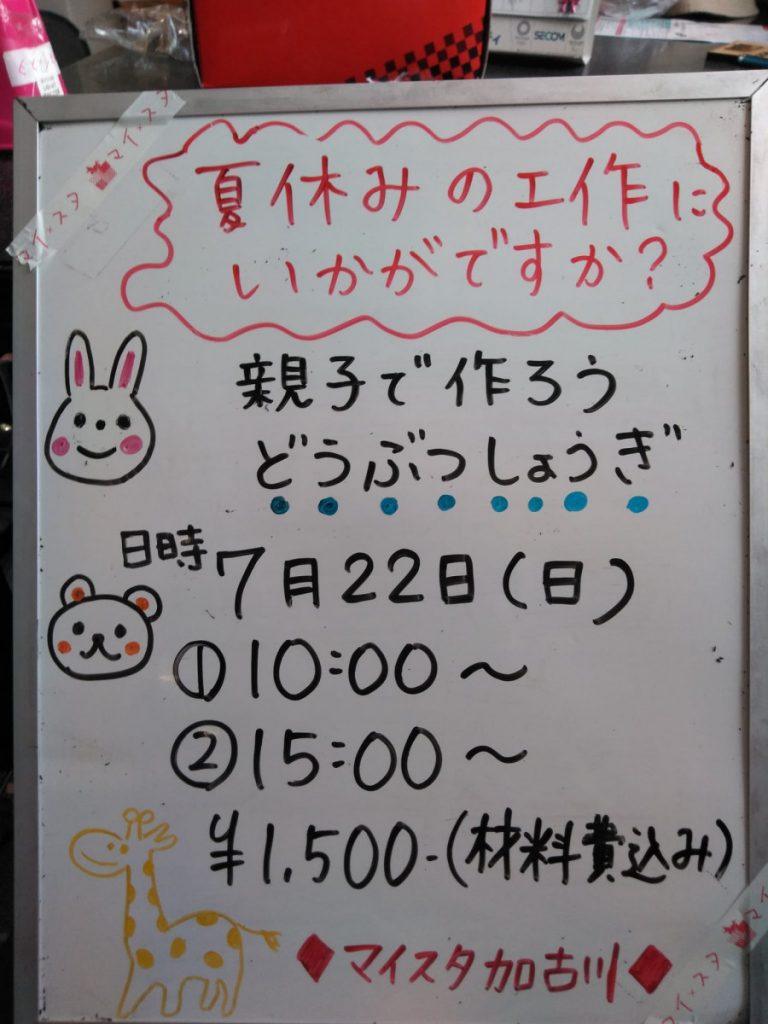 SECOM
マイスタ マイスタ
夏休みの工作に
いかがですか?
親子で作ろう
どうぶつしょうぎ
日時 7月22日(日)
①10:00~
②15:00~
¥1,500-(材料費込み)
◆マイスタ加古川◆
マイスタ マイ